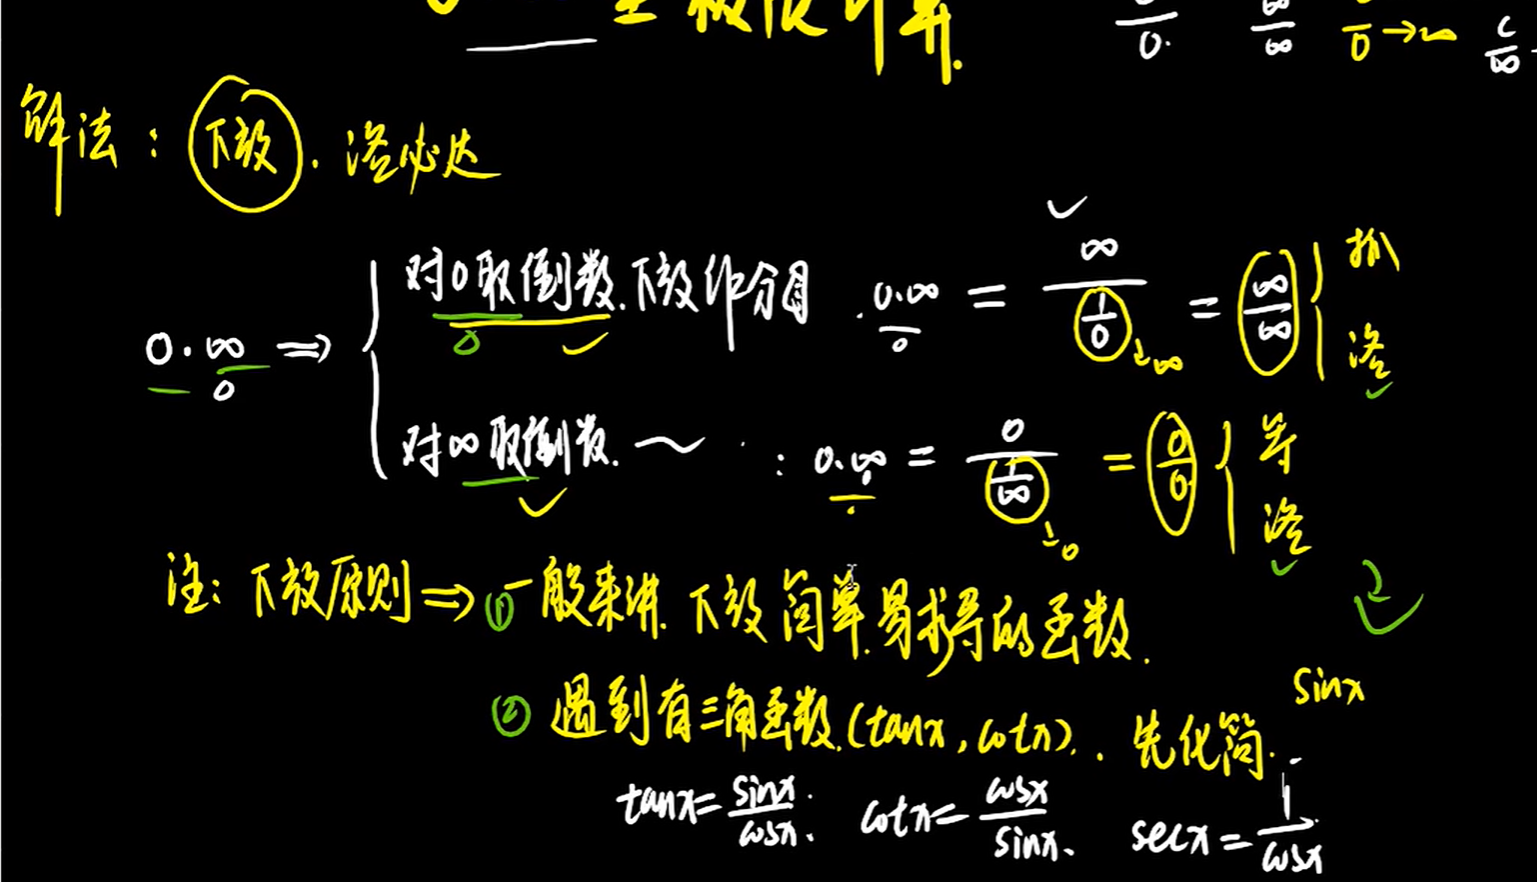 型极限计算.
0. ∞ 0→∞ c/∞
解法：下放. 洛必达
对0取倒数.下放作分母. 0·∞ = ∞/(1/0) = ∞/∞ { 抓
0·∞ ⇒ { →∞ 洛
对∞取倒数. ～ : 0·∞ = 0/(1/∞) = 0/0 { 等
→0 洛
注: 下放原则 ⇒ ① 一般来讲. 下放简单.易求导的函数.
sinx
② 遇到有三角函数.(tanx, cotx). . 先化简.
tanx = sinx/cosx. cotx = cosx/sinx. secx = 1/cosx